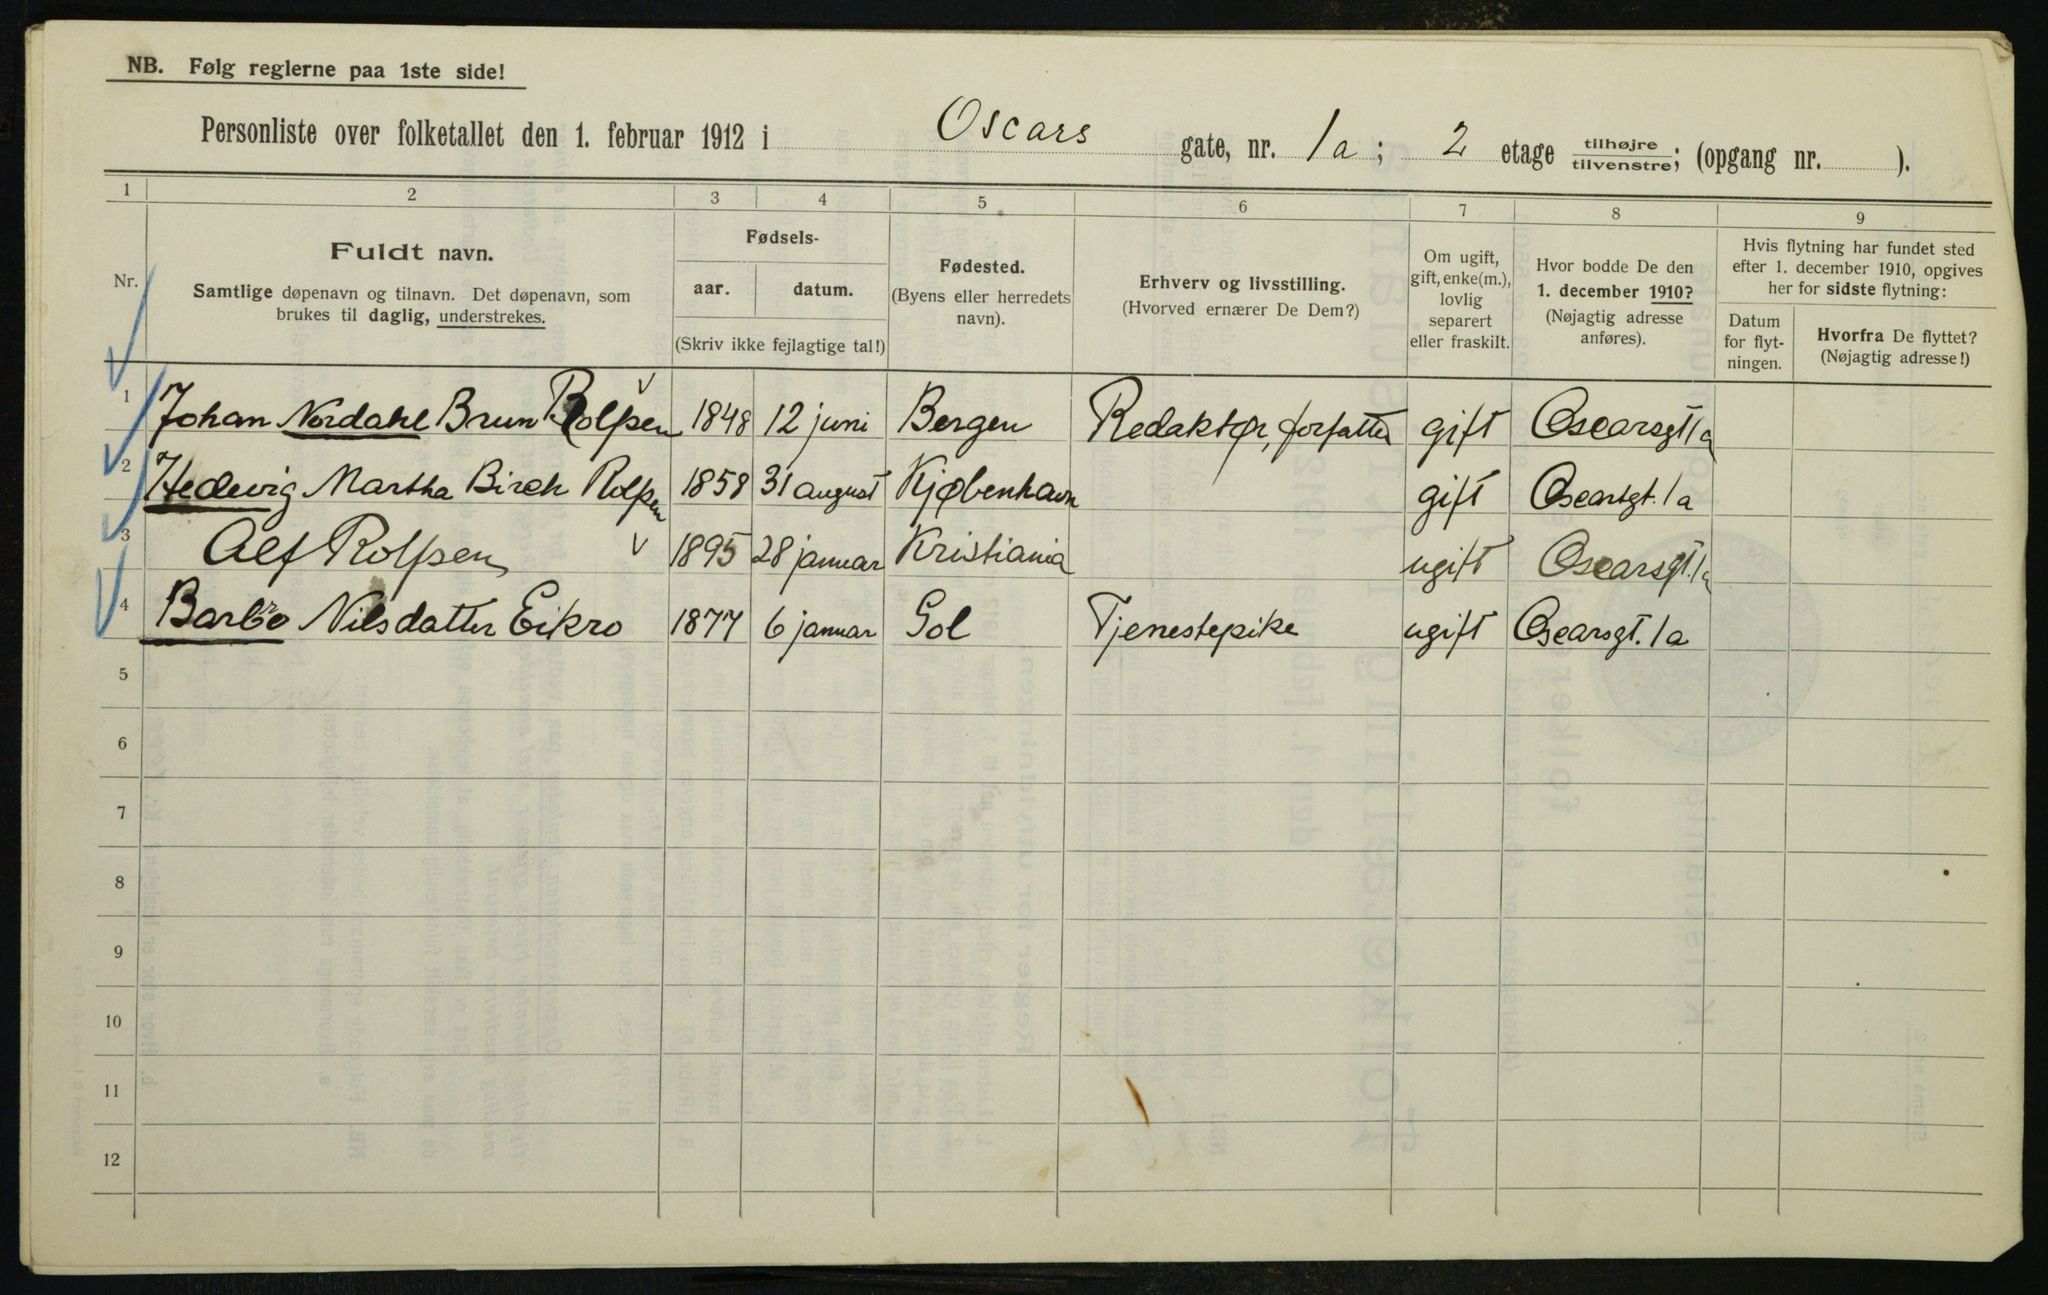 NB. Følg reglerne paa 1ste side!
Personliste over folketallet den 1. februar 1912 i Oscars gate, nr. 1a; 2 etage tilhøjre tilvenstre; (opgang nr. ).
1 2 3 4 5 6 7 8 9
Nr.
Fuldt navn.
Samtlige døpenavn og tilnavn. Det døpenavn, som
brukes til daglig, understrekes.
Fødsels-
aar. datum.
(Skriv ikke fejlagtige tal!)
Fødested.
(Byens eller herredets
navn).
Erhverv og livsstilling.
(Hvorved ernærer De Dem?)
Om ugift,
gift, enke(m.),
lovlig
separert
eller fraskilt.
Hvor bodde De den
1. december 1910?
(Nøjagtig adresse
anføres).
Hvis flytning har fundet sted
efter 1. december 1910, opgives
her for sidste flytning:
Datum
for flyt-
ningen.
Hvorfra De flyttet?
(Nøjagtig adresse!)
1 Johan Nordahl Brun Rolfsen 1848 12 juni Bergen Redaktør, forfatter gift Oscarsgt 1a
2 Hedevig Martha Birch Rolfsen 1858 31 august Kjøbenhavn gift Oscarsgt. 1a
3 Alf Rolfsen 1895 28 januar Kristiania ugift Oscarsgt. 1a
4 Barbo Nilsdatter Eikro 1877 6 januar Gol Tjenestepike ugift Oscarsgt. 1a
5
6
7
8
9
10
11
12